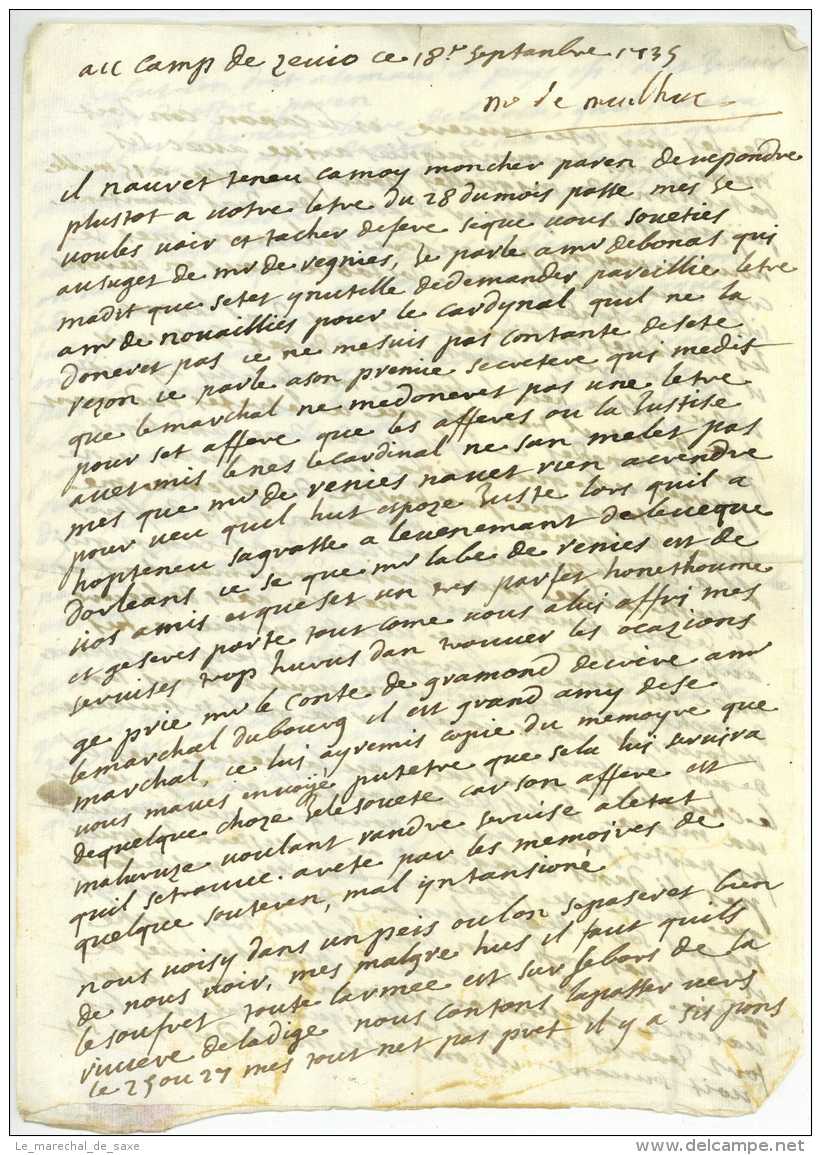 au Camp de zevio ce 18r septanbre 1735
mr de meilhuc
il nauret teneu camoy moncher paren derepondre
plustot a votre letre du 28 dumois passe mes je
voules voir et tacher defere seque vous soueties
ausuget de mr de regnies, je parle a mr debonas qui
madit que setet ynutille dedemander pareillie letre
a mr de nouaillies pour le cardynal quil ne la
doneret pas ie ne mesuis pas contante desete
rezon ie parle ason premie secretere qui medit
que lemarchal ne medoneret pas une letre
pour set affere que les afferes ou la justise
avet mis lenes lecardinal ne san melet pas
mes que mr de renies navet rien acrendre
pour veu quil hut expoze juste lors quil a
hopteneu sagrasse a levenemant de leveque
dorleans ie se que mr labe de renies est de
vos amis et que set un tres parfet honethoume
et geseres porte tout come vous a lui affri mes
servises trop hurus dan trouver les ocazions
ge prie mr le conte de gramond decrire a mr
le marchal dubourg il est grand amy dese
marchal, ie lui ayremis copie du memoyre que
vous maves envoyé putetre que sela lui servira
dequelque choze jele souete car son affere est
maluruze voulant randre servise aletat
quil setrouve arete par les memoires de
quelque souteren, mal yntansioné
nous voisy dans un peis oulon sepaseret bien
de nous voir, mes malgre hus il faut quils
le soufret toute larmee est sur lebors de la
riviere deladige nous contons lapasser vers
le 25 ou 27 mes tout net pas pret il y a sis pons
Le_marechal_de_saxe
delcampe.net